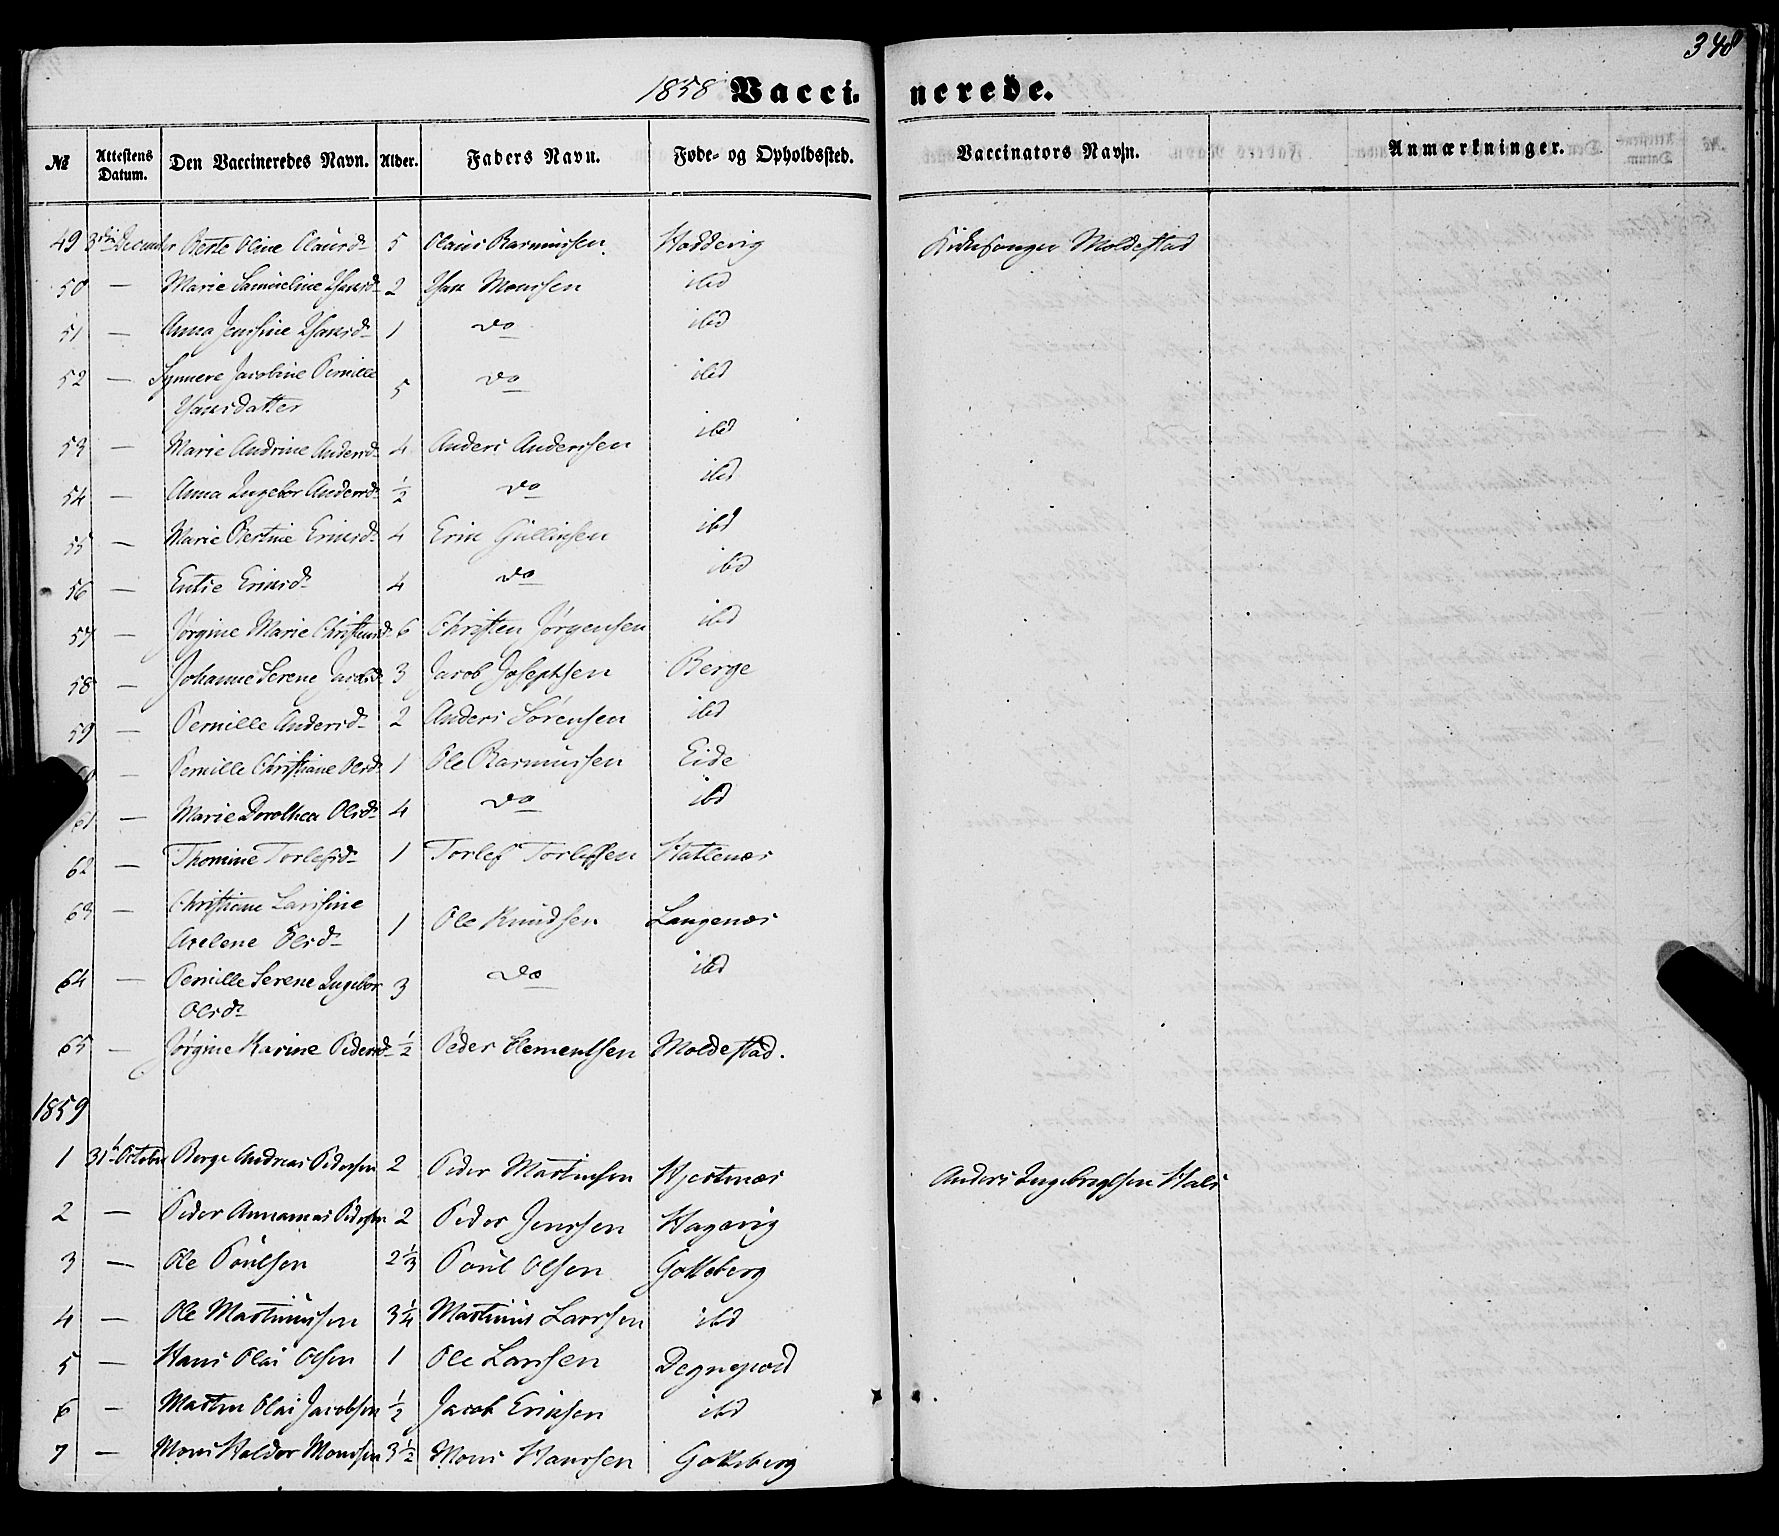 348
1858 Vaccinerede.
№ Attestens Datum. Den Vaccineredes Navn. Alder. Faders Navn. Føde- og Opholdssted. Vaccinators Navn. Anmærkninger.
49 3die December Berte Oline Olausd. 5 Olaus Rasmussen Haddevig Kirkesanger Moldestad
50 — Marie Samueline Hansd. 2 Hans Monssen ibd
51 — Anna Jensine Hansd. 1 do ibd
52 — Synneve Jacobine Pernille
Hansdatter 5 do ibd
53 — Marie Andrine Andersd. 4 Anders Anderssen ibd
54 — Anna Ingebor Andersd. ½ do ibd
55 — Marie Bertine Eriksd. 4 Erik Gulliksen ibd
56 — Entie Eriksd. 4 do ibd
57 — Jørgine Marie Christensd. 6 Christen Jørgensen ibd
58 — Johanne Serene Jacobsd. 3 Jacob Josephsen Berge
59 — Pernille Andersd. 2 Anders Sørensen ibd
60 — Pernille Christiane Olsd. 1 Ole Rasmussen Eide
61 — Marie Dorothea Olsd. 4 do ibd
62 — Thomine Torlefsd. 1 Torlef Torlefsen Hatlenæs
63 — Christiane Larssine
Axelene Olsd. 1 Ole Knudsen Langenæs
64 — Pernille Serene Ingebor
Olsd. 3 do ibd
65 — Jørgine Karine Pedersd. ½ Peder Clementsen Moldestad.
1859
1 31te October Berge Andreas Pedersen 2 Peder Martinsen Hjertnæs Anders Ingebregtsen Hals
2 — Peder Annanias Pedersen 2 Peder Jenssen Hagevig
3 — Ole Poulsen 2⅓ Poul Olsen Gotteberg
4 — Ole Martinussen 3¼ Martinus Larssen ibd
5 — Hans Olai Olsen 1 Ole Larssen Degnepold
6 — Martin Olai Jacobsen ½ Jacob Eriksen ibd
7 — Mons Haldor Monssen 3½ Mons Hanssen Gotteberg